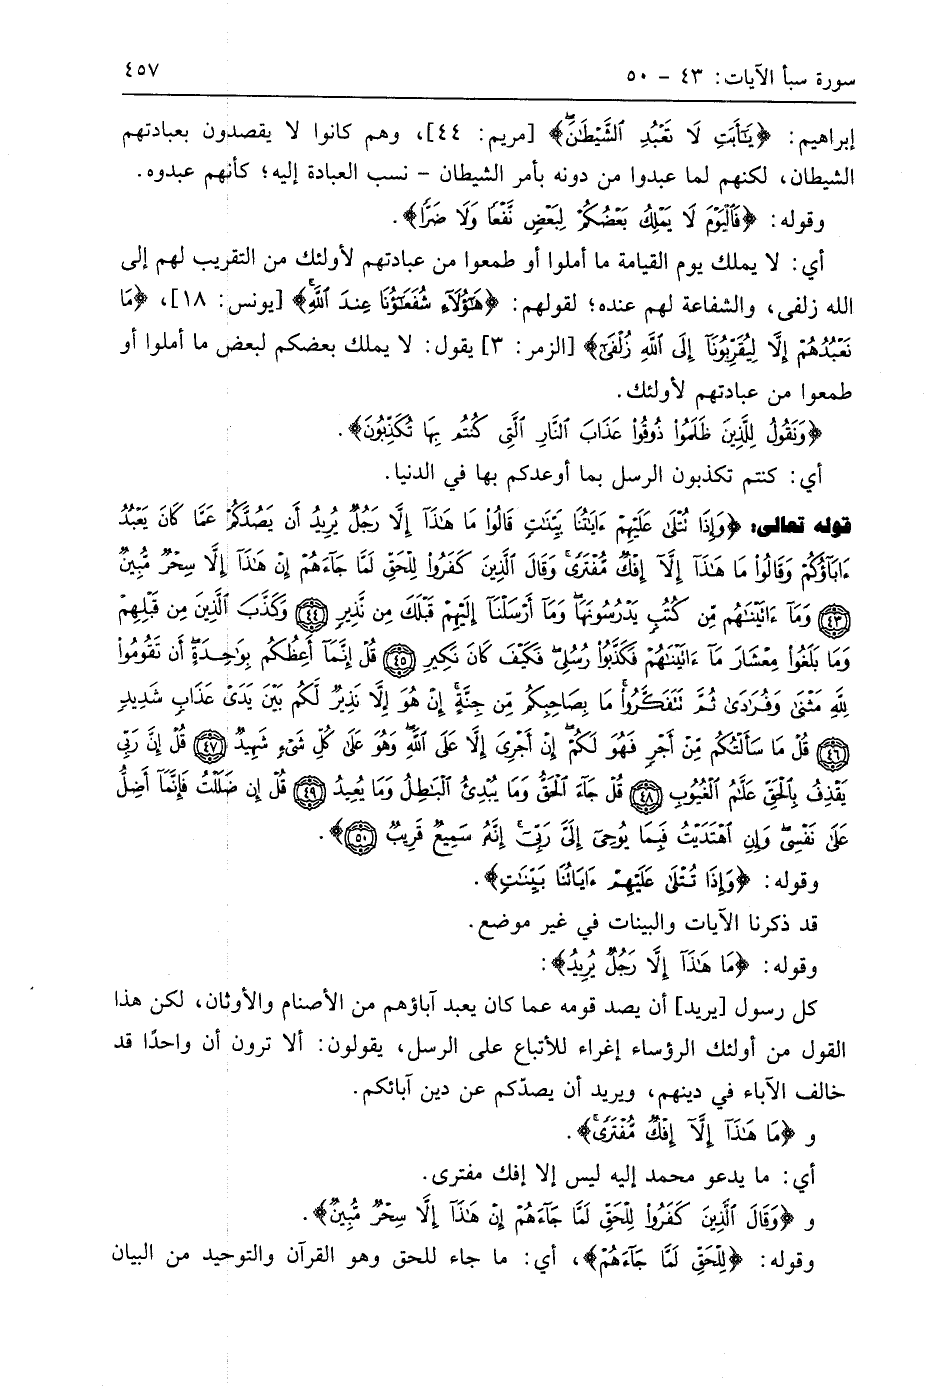 سورة سبأ الآيات: ٤٣ - ٥٠ ٤٥٧
إبراهيم: ﴿يَٰٓأَبَتِ لَا تَعْبُدِ ٱلشَّيْطَٰنَۖ﴾ [مريم: ٤٤]، وهم كانوا لا يقصدون بعبادتهم
الشيطان، لكنهم لما عبدوا من دونه بأمر الشيطان - نسب العبادة إليه؛ كأنهم عبدوه.
وقوله: ﴿فَٱلْيَوْمَ لَا يَمْلِكُ بَعْضُكُمْ لِبَعْضٍ نَّفْعًا وَلَا ضَرًّا﴾.
أي: لا يملك يوم القيامة ما أملوا أو طمعوا من عبادتهم لأولئك من التقريب لهم إلى
الله زلفى، والشفاعة لهم عنده؛ لقولهم: ﴿هَٰٓؤُلَآءِ شُفَعَٰٓؤُنَا عِندَ ٱللَّهِۚ﴾ [يونس: ١٨]، ﴿مَا
نَعْبُدُهُمْ إِلَّا لِيُقَرِّبُونَآ إِلَى ٱللَّهِ زُلْفَىٰٓ﴾ [الزمر: ٣] يقول: لا يملك بعضكم لبعض ما أملوا أو
طمعوا من عبادتهم لأولئك.
﴿وَنَقُولُ لِلَّذِينَ ظَلَمُوا۟ ذُوقُوا۟ عَذَابَ ٱلنَّارِ ٱلَّتِى كُنتُم بِهَا تُكَذِّبُونَ﴾.
أي: كنتم تكذبون الرسل بما أوعدكم بها في الدنيا.
قوله تعالى: ﴿وَإِذَا تُتْلَىٰ عَلَيْهِمْ ءَايَٰتُنَا بَيِّنَٰتٍ قَالُوا۟ مَا هَٰذَآ إِلَّا رَجُلٌ يُرِيدُ أَن يَصُدَّكُمْ عَمَّا كَانَ يَعْبُدُ
ءَابَآؤُكُمْ وَقَالُوا۟ مَا هَٰذَآ إِلَّآ إِفْكٌ مُّفْتَرًىۚ وَقَالَ ٱلَّذِينَ كَفَرُوا۟ لِلْحَقِّ لَمَّا جَآءَهُمْ إِنْ هَٰذَآ إِلَّا سِحْرٌ مُّبِينٌ
﴿٤٣﴾ وَمَآ ءَاتَيْنَٰهُم مِّن كُتُبٍ يَدْرُسُونَهَاۖ وَمَآ أَرْسَلْنَآ إِلَيْهِمْ قَبْلَكَ مِن نَّذِيرٍ ﴿٤٤﴾ وَكَذَّبَ ٱلَّذِينَ مِن قَبْلِهِمْ
وَمَا بَلَغُوا۟ مِعْشَارَ مَآ ءَاتَيْنَٰهُمْ فَكَذَّبُوا۟ رُسُلِىۖ فَكَيْفَ كَانَ نَكِيرِ ﴿٤٥﴾ قُلْ إِنَّمَآ أَعِظُكُم بِوَٰحِدَةٍۖ أَن تَقُومُوا۟
لِلَّهِ مَثْنَىٰ وَفُرَٰدَىٰ ثُمَّ تَتَفَكَّرُوا۟ۚ مَا بِصَاحِبِكُم مِّن جِنَّةٍۚ إِنْ هُوَ إِلَّا نَذِيرٌ لَّكُم بَيْنَ يَدَىْ عَذَابٍ شَدِيدٍ
﴿٤٦﴾ قُلْ مَا سَأَلْتُكُم مِّنْ أَجْرٍ فَهُوَ لَكُمْۖ إِنْ أَجْرِىَ إِلَّا عَلَى ٱللَّهِۖ وَهُوَ عَلَىٰ كُلِّ شَىْءٍ شَهِيدٌ ﴿٤٧﴾ قُلْ إِنَّ رَبِّى
يَقْذِفُ بِٱلْحَقِّ عَلَّٰمُ ٱلْغُيُوبِ ﴿٤٨﴾ قُلْ جَآءَ ٱلْحَقُّ وَمَا يُبْدِئُ ٱلْبَٰطِلُ وَمَا يُعِيدُ ﴿٤٩﴾ قُلْ إِن ضَلَلْتُ فَإِنَّمَآ أَضِلُّ
عَلَىٰ نَفْسِىۖ وَإِنِ ٱهْتَدَيْتُ فَبِمَا يُوحِىٓ إِلَىَّ رَبِّىٓۚ إِنَّهُۥ سَمِيعٌ قَرِيبٌ ﴿٥٠﴾﴾.
وقوله: ﴿وَإِذَا تُتْلَىٰ عَلَيْهِمْ ءَايَاتُنَا بَيِّنَٰتٍ﴾.
قد ذكرنا الآيات والبينات في غير موضع.
وقوله: ﴿مَا هَٰذَآ إِلَّا رَجُلٌ يُرِيدُ﴾:
كل رسول [يريد] أن يصد قومه عما كان يعبد آباؤهم من الأصنام والأوثان، لكن هذا
القول من أولئك الرؤساء إغراء للأتباع على الرسل، يقولون: ألا ترون أن واحدًا قد
خالف الآباء في دينهم، ويريد أن يصدّكم عن دين آبائكم.
و ﴿مَا هَٰذَآ إِلَّآ إِفْكٌ مُّفْتَرًىۚ﴾.
أي: ما يدعو محمد إليه ليس إلا إفك مفترى.
و ﴿وَقَالَ ٱلَّذِينَ كَفَرُوا۟ لِلْحَقِّ لَمَّا جَآءَهُمْ إِنْ هَٰذَآ إِلَّا سِحْرٌ مُّبِينٌ﴾.
وقوله: ﴿لِلْحَقِّ لَمَّا جَآءَهُمْ﴾، أي: ما جاء للحق وهو القرآن والتوحيد من البيان